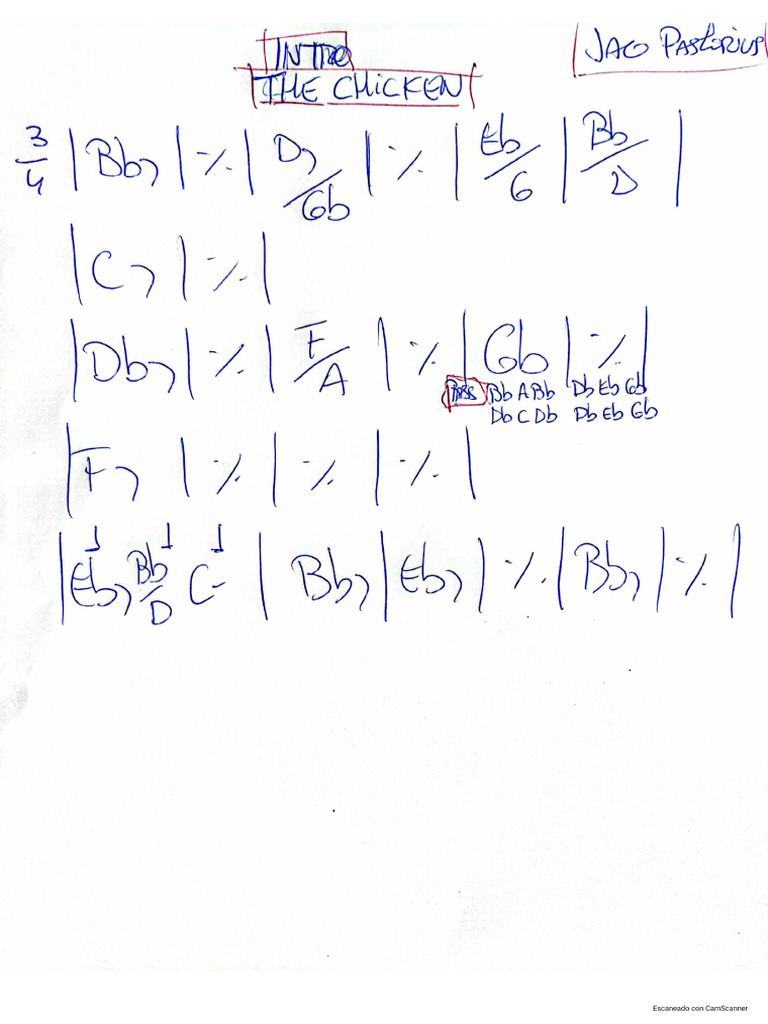 INTRO
THE CHICKEN
JACO PASTORIUS
3/4 | Bb7 | ٪ | D7/Gb | ٪ | Eb/G | Bb/D |
| C7 | ٪ |
| Db7 | ٪ | F/A | ٪ | Gb | ٪ |
BASS Bb A Bb Db Eb Gb
Db C Db Db Eb Gb
| F7 | ٪ | ٪ | ٪ |
| Eb7 Bb/D C- | Bb7 | Eb7 | ٪ | Bb7 | ٪ |
Escaneado con CamScanner